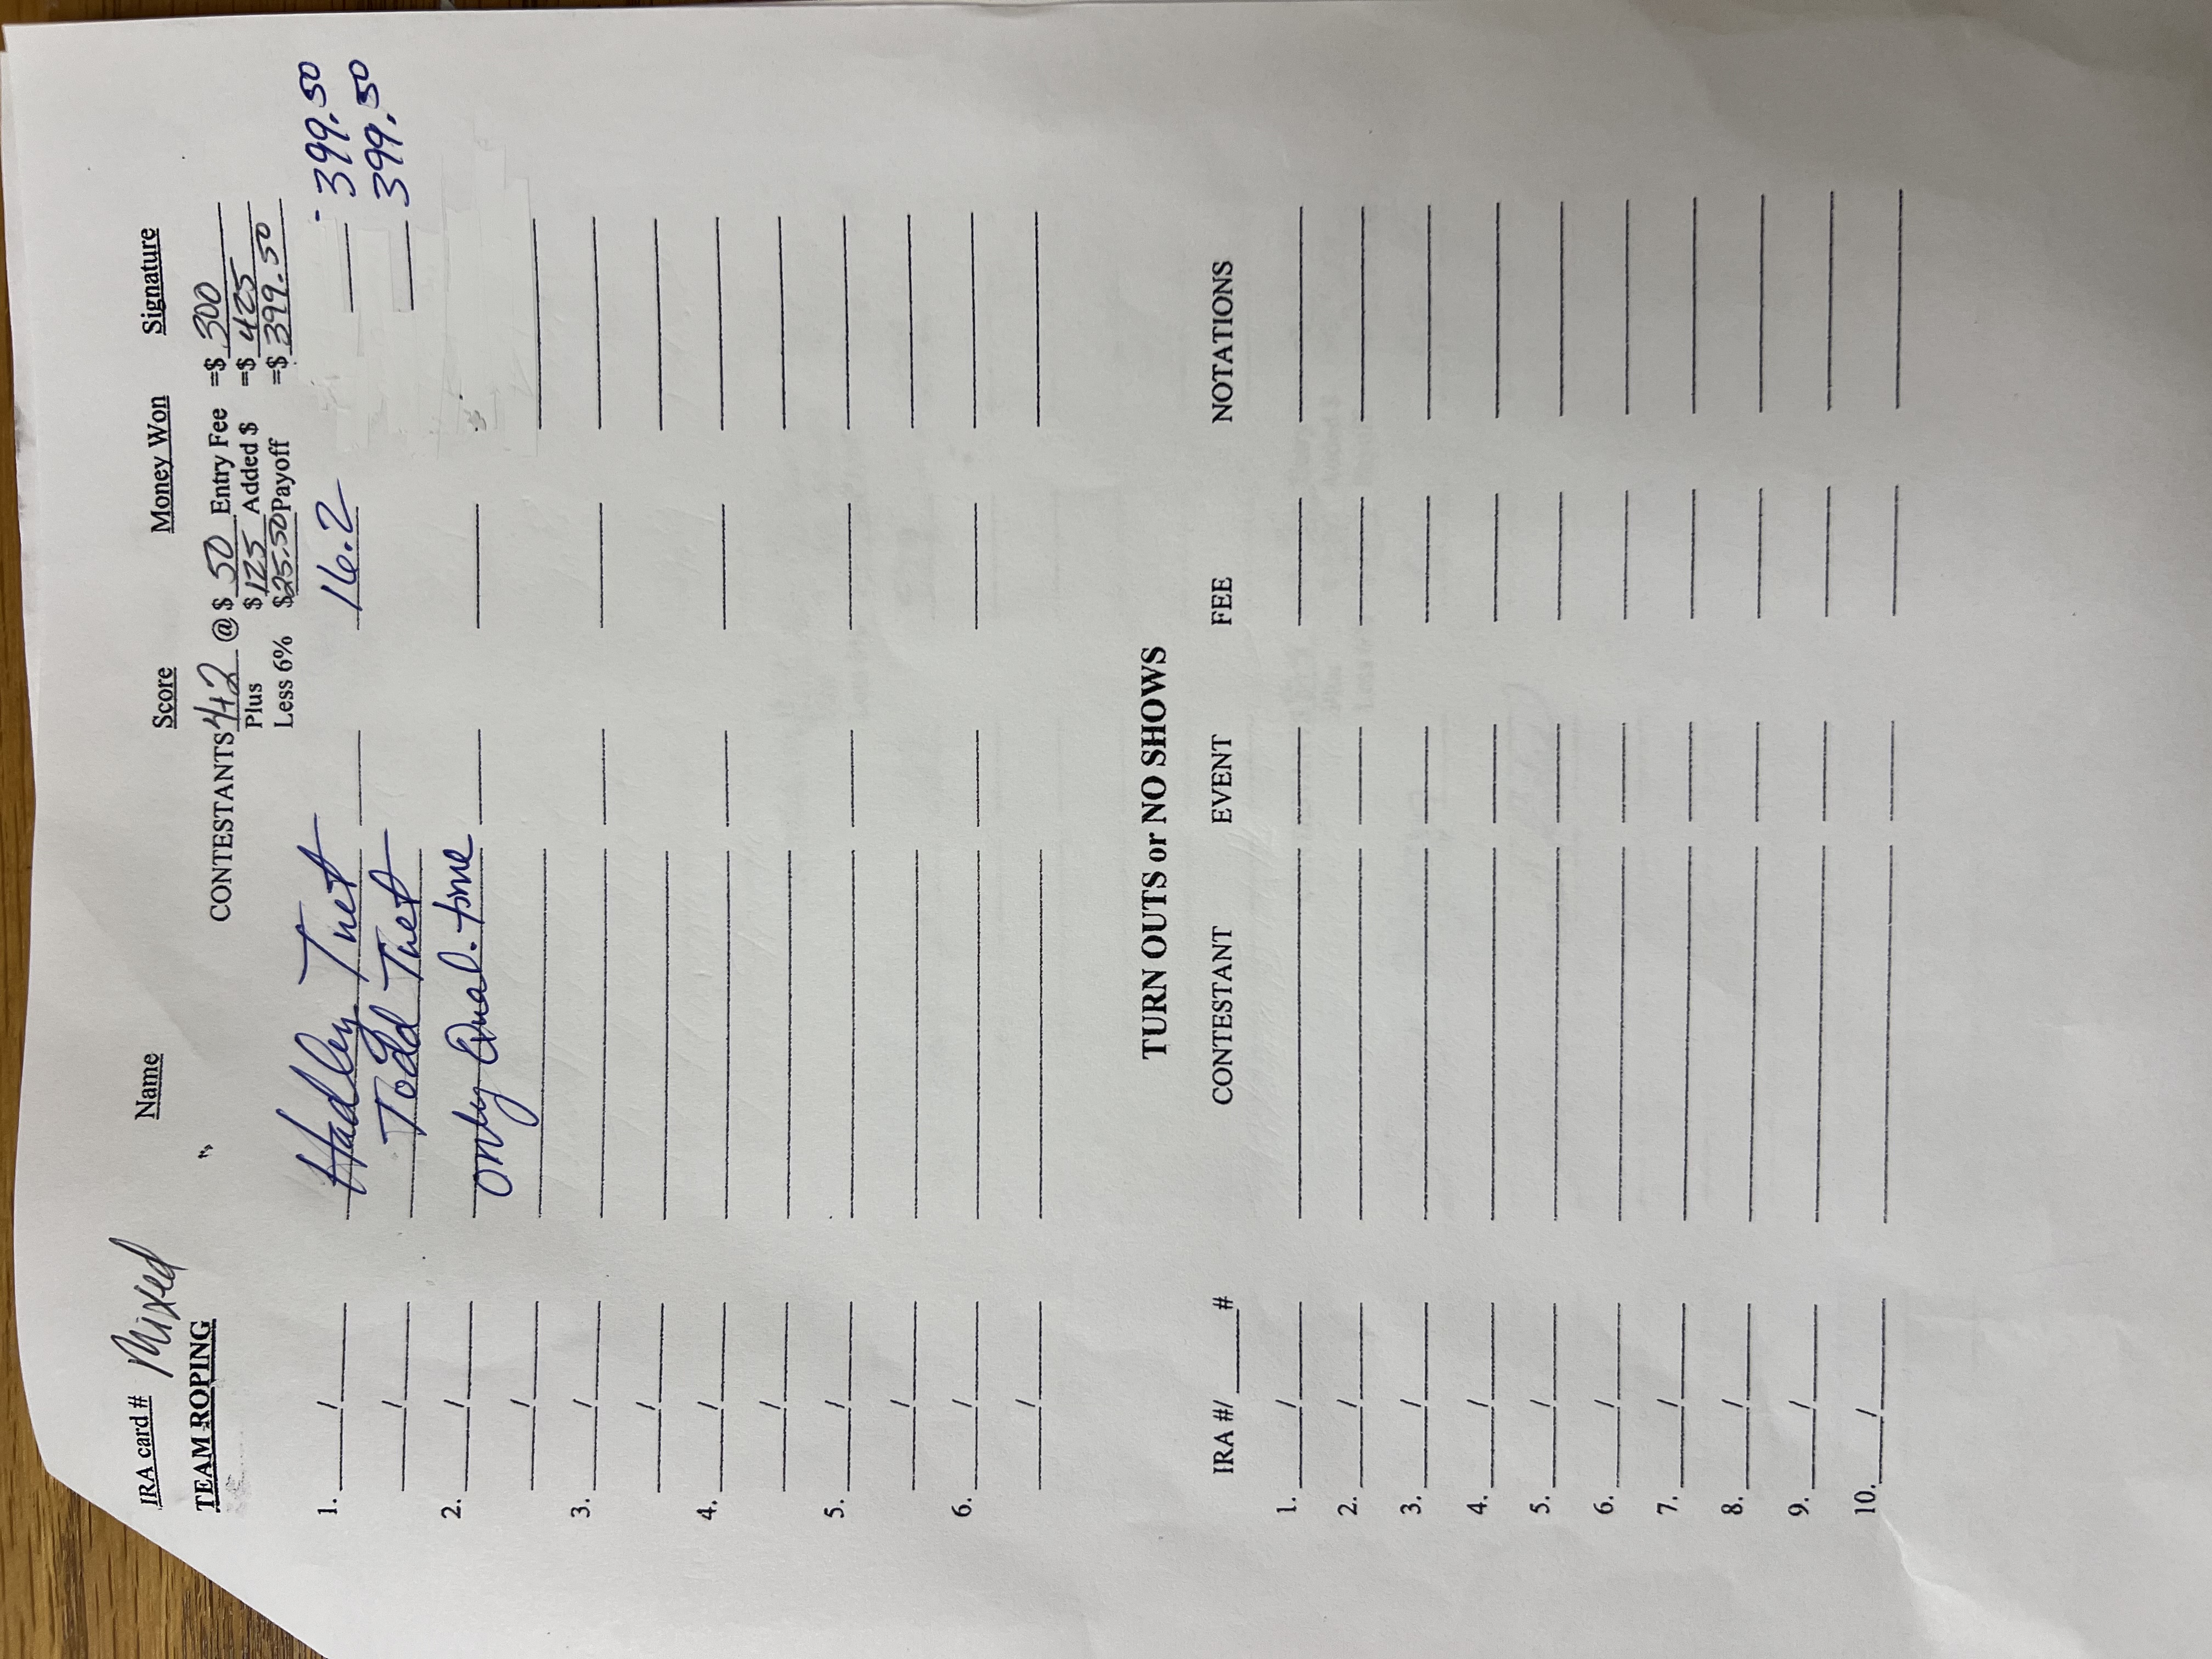 IRA card # Mixed Name Score Money Won Signature
TEAM ROPING
CONTESTANTS @ $ 50 Entry Fee =$ 300
Plus $ 125 Added $ =$ 425
Less 6% $25.50 Payoff =$ 399.50
1. / Hadley Tuet 16.2 399.50
/ Todd Tuet 399.50
2. / only Qual. time
/
3. /
/
4. /
/
5. /
/
6. /
/
TURN OUTS or NO SHOWS
IRA #/ # CONTESTANT EVENT FEE NOTATIONS
1. /
2. /
3. /
4. /
5. /
6. /
7. /
8. /
9. /
10. /